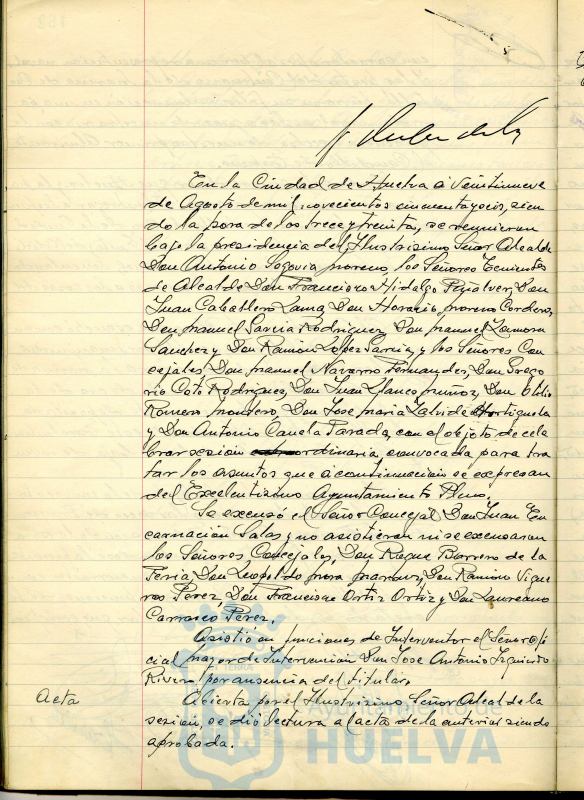 En la Ciudad de Huelva a veintinueve
de Agosto de mil novecientos cincuenta y seis, sien
do la hora de las trece y treinta, se reunieron
bajo la presidencia del Ilustrisimo Señor Alcalde
Don Antonio Segovia Moreno, los Señores Tenientes
de Alcalde Don Francisco Hidalgo Peñalver, Don
Juan Caballero Lama, Don Horacio Moreno Cordero,
Don Manuel Garcia Rodriguez, Don Manuel Zamora
Sanchez y Don Ramon Lopez Garcia, y los Señores Con
cejales Don Manuel Navarro Fernandez, Don Grego
rio Coto Rodriguez, Don Juan Llanes Muñoz, Don
Romero Montero, Don Jose Maria
y Don Antonio Canela Parrado, con el objeto de cele
brar sesion ordinaria, convocada para tra
tar los asuntos que a continuacion se expresan
del Excelentisimo Ayuntamiento Pleno.
Se excusó el Señor Concejal Don Juan En
carnacion Salas y no asistieron ni se excusaron
los Señores Concejales, Don Roque Barrero de la
Feria, Don Leopoldo Mora Don Ramon Vigue
ras Perez, Don Francisco Ortiz Ortiz y Don Laureano
Carrasco Perez.
Asistió en funciones de Interventor el Señor Ofi
cial Mayor de Intervencion Don Jose Antonio Izquierdo
Rivera por ausencia del titular.
Acta
Abierta por el Ilustrisimo Señor Alcalde la
sesion, se dió lectura al acta de la anterior siendo
aprobada.
Ayuntamiento de
HUELVA